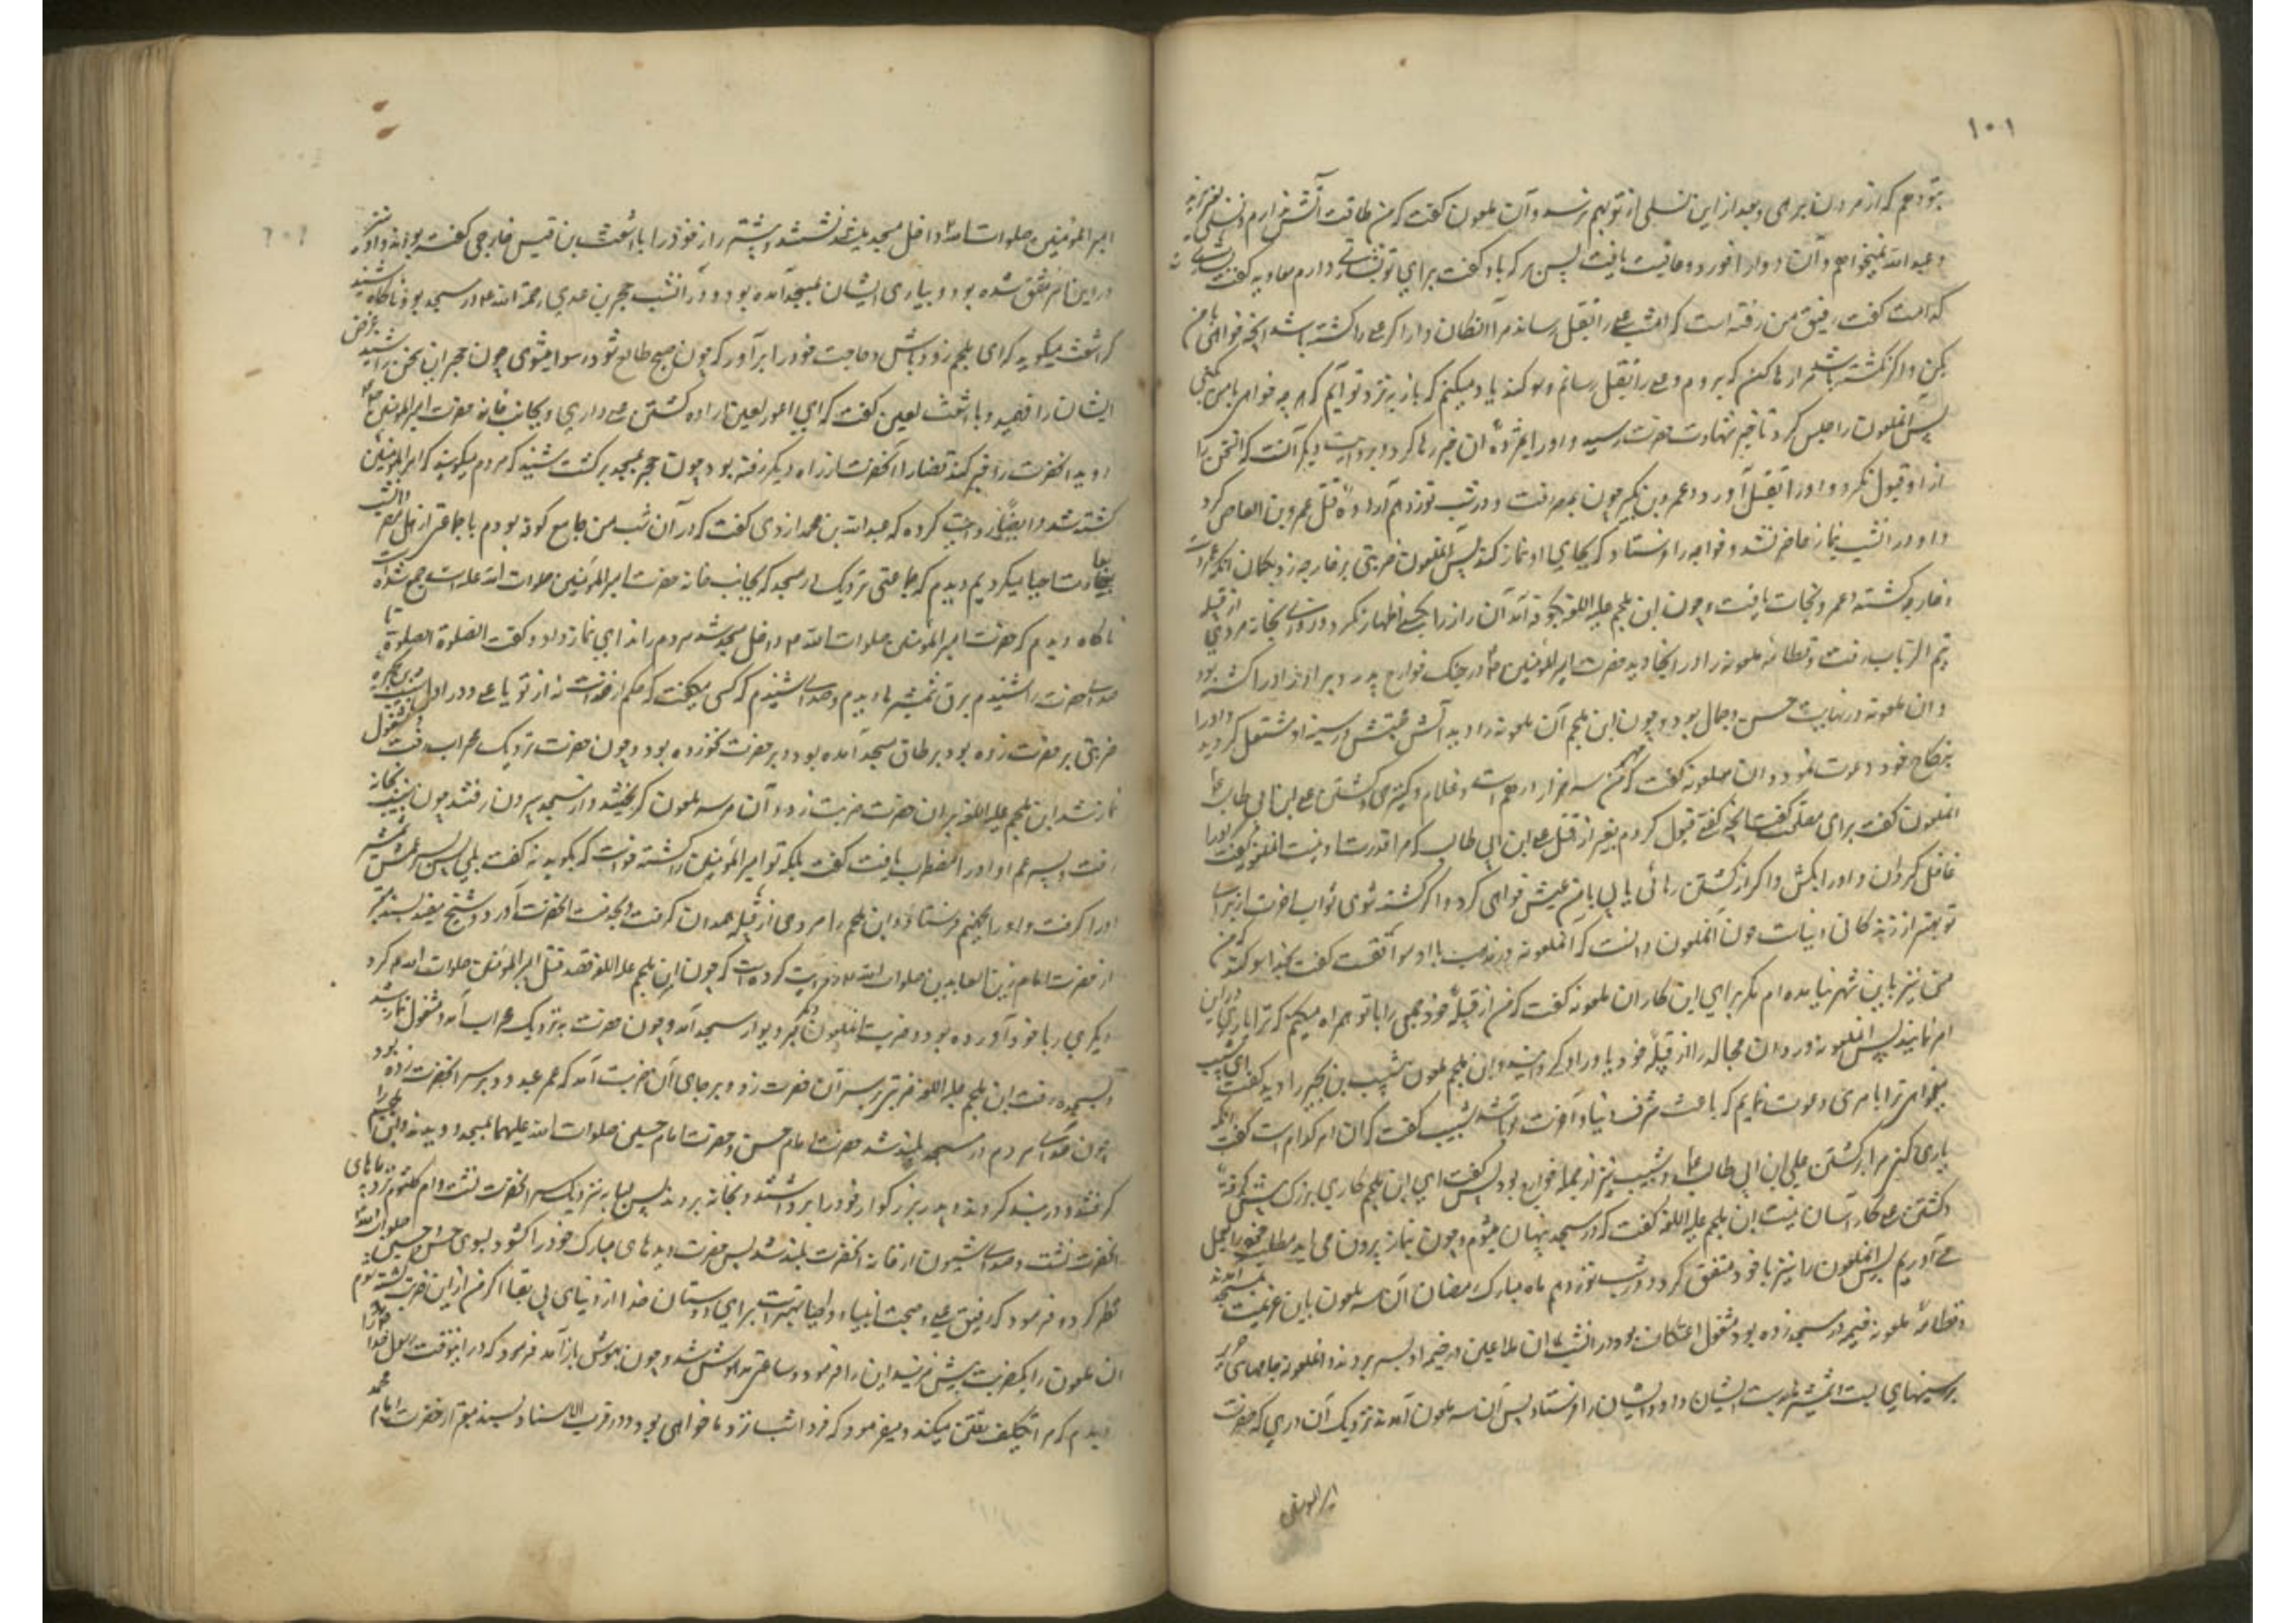 ۱۰۱
بتو دهم که از مردن برهی و بعد از این نسلی از تو بهم نرسد و آن ملعون گفت که من طاقت آتش ندارم و نسلی بغیر از
و عبدالله نمیخواهم و آن دوا را خورد و عافیت یافت پس برک با و گفت برای تو بشارتی دارم معاویه گفت بشارت
کدامست گفت رفیق من رفته است که امشب علی را بقتل رساند مرا نگاه دار اگر علی را کشته باشد آنچه خواهی با من
بکن و اگر نکشته باشد مرا رها کن که بروم و علی را بقتل رسانم و سوگند یاد میکنم که باز به نزد تو آیم که هر چه خواهی با من بکنی
پس آن ملعون را حبس کرد تا خبر شهادت حضرت رسید و او را بمژده آن خبر رها کرد و بروایت دیگر آنست که آن سخن را
از او قبول نکرد و او را بقتل آورد و عمرو بن بکیر چون بمصر رفت و در شب نوزدهم اراده قتل عمرو بن العاص کرد
و او در آنشب بنماز حاضر نشد و خارجه را فرستاد که بجای او نماز کند پس آن ملعون ضربتی بر خارجه زد بگمان آنکه عمروست
و خارجه کشته و عمرو نجات یافت و چون ابن ملجم علیه اللعنه بکوفه آمد آن راز را بکسی اظهار نکرد و روزی بخانه مردی از قبیله
تیم الرباب رفت و قطامه ملعونه را در آنجا دید حضرت امیرالمؤمنین ع در جنگ خوارج پدر و برادر او را کشته بود
و آن ملعونه در نهایت حسن و جمال بود و چون ابن ملجم آن ملعونه را دید آتش محبتش در سینه او مشتعل گردید و او را
بنکاح خود دعوت نمود و آن ملعونه گفت که مهر من سه هزار درهم است و غلام و کنیزی و کشتن علی ابن ابی طالب ع
آن ملعون گفت برای مقدمت آنچه گفتی قبول کردم بغیر از قتل علی ابن ابی طالب که مرا قدرت او نیست آن ملعونه گفت او را
غافل گردان و او را بکش و اگر از کشتن رهائی یابی با من عیش خواهی کرد و اگر کشته شوی ثواب آخرت از برای
تو بهتر از زندگانی دنیاست چون آن ملعون دانست که آن ملعونه در مذهب با او موافقست گفت بخدا سوگند که من
نیز باین شهر نیامده ام مگر برای این کار آن ملعونه گفت که من از قبیله خود جمعی را با تو همراه میکنم که ترا یاری در این
امر نمایند پس آن ملعونه وردان مجالد را از قبیله خود یاور او گردانید و ابن ملجم ملعون شبیب بن بجیر را دید گفت ای شبیب
میخواهی ترا بامری دعوت نمایم که باعث شرف دنیا و آخرت تو باشد شبیب گفت که آن امر کدام است گفت آنکه
یاری کنی مرا بر کشتن علی ابن ابی طالب ع و شبیب نیز از جمله خوارج بود پس گفت ای ابن ملجم کاری بزرگ پیش گرفته
و کشتن علی کار آسان نیست ابن ملجم علیه اللعنه گفت که در مسجد پنهان میشوم و چون بنماز بیرون می آید مطلب خود را بعمل
می آوریم پس آن ملعون را نیز با خود متفق کرد و در شب نوزدهم ماه مبارک رمضان آن سه ملعون باین عزیمت بمسجد آمدند
و قطامه ملعونه خیمه در مسجد زده بود و مشغول اعتکاف بود در آنشب آن ملاعین در خیمه او بسر بردند و آن ملعونه جامهای حریر
بر سینهای ایشان بست و شمشیر بدست ایشان داد و ایشان را فرستاد پس آن سه ملعون آمدند نزدیک آن دری که حضرت
امیرالمؤمنین
امیرالمؤمنین صلوات الله ع داخل مسجد میشد نشستند و پیشتر راز خود را با اشعث بن قیس خارجی گفته بودند و او نیز
در این امر متفق شده بود و بیاری ایشان بمسجد آمده بود و در آنشب حجر بن عدی رحمة الله علیه در مسجد بود ناگاه شنید
که اشعث میگوید که ای ملجم زود باش و حاجت خود را برآور که چون صبح طالع شود رسوا میشوی چون حجر این سخن را شنید غرض
ایشان را فهمید و با اشعث لعین گفت که ای اعور لعین اراده کشتن علی داری و بجانب خانه حضرت امیرالمؤمنین ع
دوید که آنحضرت را خبر کند قضا را آنحضرت از راه دیگر رفته بود چون حجر بمسجد برگشت شنید که مردم میگویند که امیرالمؤمنین
کشته شد و ایضا روایت کرده که عبدالله بن محمد ازدی گفت که در آن شب من در جامع کوفه بودم با جماعتی از اهل مصر و آنشب
بعبادت احیا میکردیم دیدم که جماعتی نزدیک در مسجد که بجانب خانه حضرت امیرالمؤمنین صلوات الله علیه است جمع شده اند
ناگاه دیدم که حضرت امیرالمؤمنین صلوات الله ع داخل مسجد شد و مردم را ندای نماز داد و گفت الصلوة الصلوة تا
صدای حضرت را شنیدم برق شمشیرها دیدم و صدای شنیدم که کسی میگفت که حکم از خداست نه از تو یا علی و در اول شبیب بن بجره
ضربتی بر حضرت زده بود بر طاق مسجد آمده بود و بر حضرت نخورده بود و چون حضرت نزدیک محراب رفت و مشغول
نماز شد ابن ملجم علیه اللعنه بر آن حضرت ضربت زد و آن هر سه ملعون گریختند و از مسجد بیرون رفتند چون شبیب بخانه
رفت پسر عم او او را مضطرب یافت گفت بلکه تو امیرالمؤمنین را کشته خواست که بگوید نه گفت بلی پس پسر عمش شمشیر
او را گرفت و او را بجهنم فرستاد و ابن ملجم را مردی از قبیله همدان گرفت و بخدمت آنحضرت آورد و شیخ مفید بسند معتبر
از حضرت امام زین العابدین صلوات الله ع روایت کرده است که چون ابن ملجم علیه اللعنه قصد قتل امیرالمؤمنین صلوات الله ع کرد
دیگری را با خود آورده بود و ضربت آن ملعون دیگر بر دیوار مسجد آمد و چون حضرت به نزدیک محراب آمد و مشغول نماز شد
و بسجده رفت ابن ملجم علیه اللعنه ضربتی بر سر آن حضرت زد و بر جای آن ضربت آمد که عمر عبدود بر سر آنحضرت زده بود
چون صدای مردم در مسجد بلند شد حضرت امام حسن و حضرت امام حسین صلوات الله علیهما بمسجد دویدند و ابن ملجم را
گرفتند و در بند کردند و پدر بزرگوار خود را برداشتند و بخانه بردند پس لبابه نزدیک سر آنحضرت نشست و ام کلثوم نزد پاهای
آنحضرت نشست و صدای شیون از خانه آنحضرت بلند شد پس حضرت دیدهای مبارک خود را گشود و بسوی حسن و حسین صلوات الله
نظر کرد و فرمود که رفیق اعلی و صحبت انبیا و اولیا بهتر است برای دوستان خدا از دنیای بی بقا اگر من از این ضربت کشته شوم
آن ملعون را یکضربت بیش مزنید این را فرمود و ساعتی مدهوش شد و چون بهوش باز آمد فرمود که در اینوقت رسول خدا را
دیدم که مرا تکلیف رفتن میکند و میفرمود که فردا شب نزد ما خواهی بود و در قرب الاسناد بسند معتبر از حضرت امام محمد